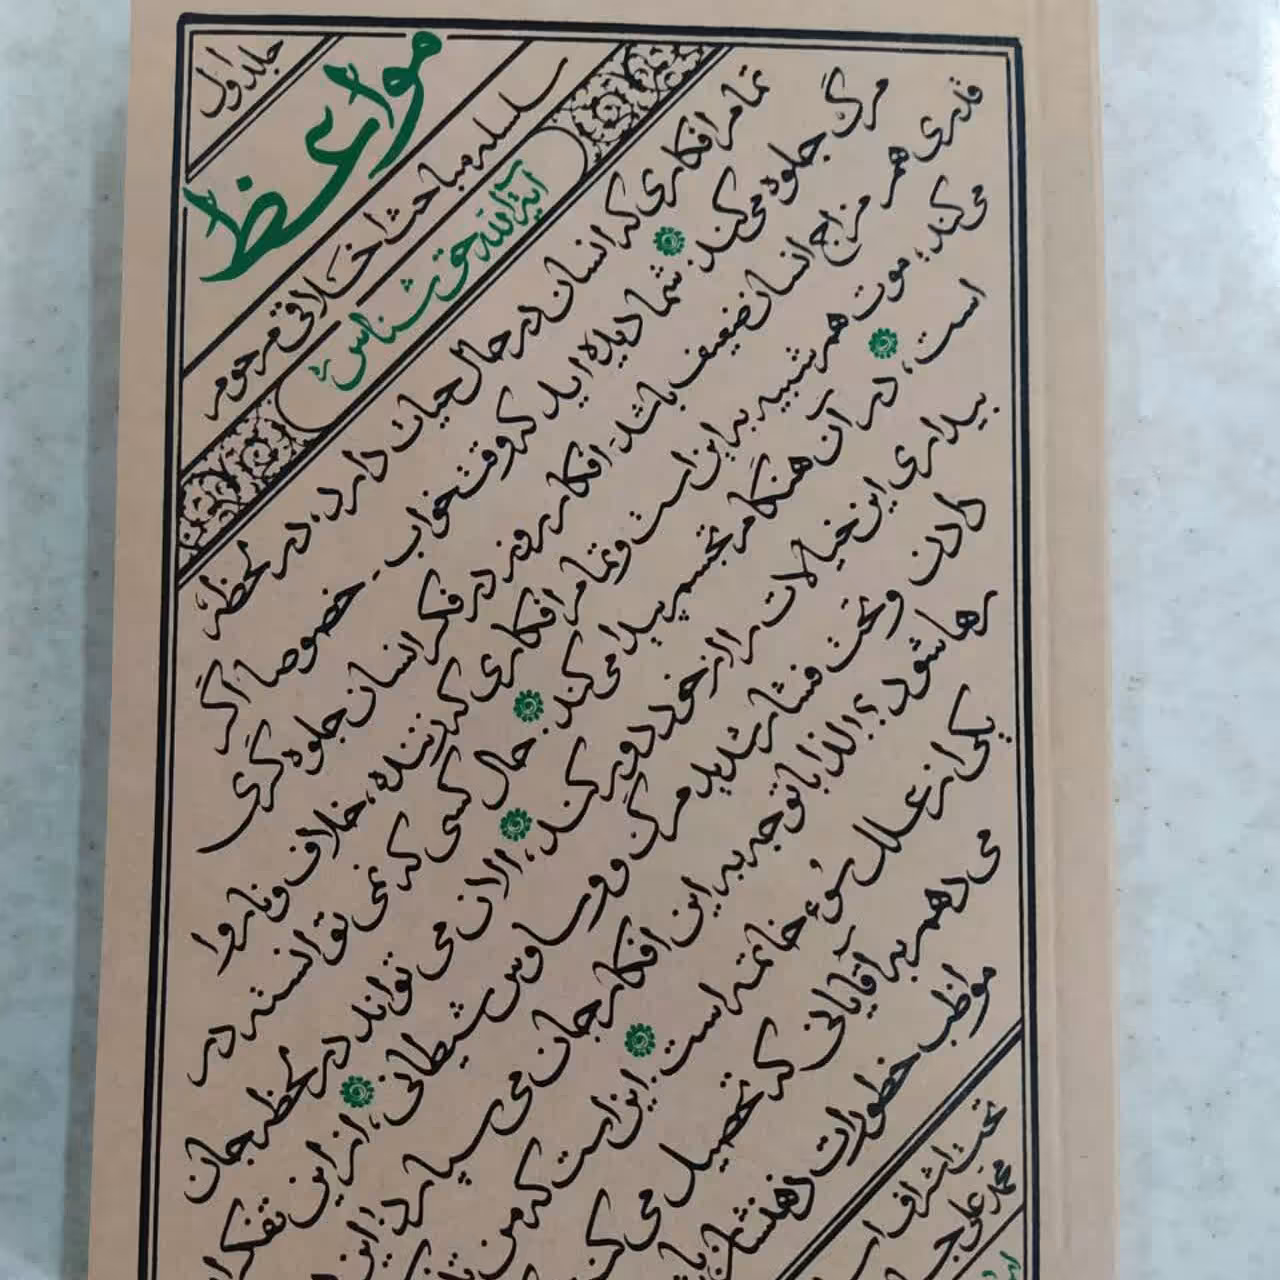 جلد اول
مواعظ
سلسله مباحث اخلاقی مرحوم
آیة‌الله حق شناس
تمام افکاری که انسان در حال حیات دارد، در لحظهٔ
مرگ جلوه می‌کند. شما دیده اید که وقت خواب - خصوصا اگر
قدری هم مزاج انسان ضعیف باشد - افکار روز در فکر انسان جلوه گری
می‌کند، موت هم شبیه به این است و تمام افکاری که زننده، خلاف و ناروا
است، در آن هنگام تجسم پیدا می‌کند. حال کسی که نمی توانسته در
بیداری این خیالات را از خود دور کند، الان می تواند در لحظه جان
دادن و تحت فشار شدید مرگ و وساوس شیطانی، از این تفکرات
رها شود؟! لذا با توجه به این افکار جان می سپارد! این
یکی از علل سوء خاتمه است. این است که من
می دهم به آقایانی که تحصیل می کنند
مواظب خطورات ذهنشان باشند
تحت اشراف
محمد علی